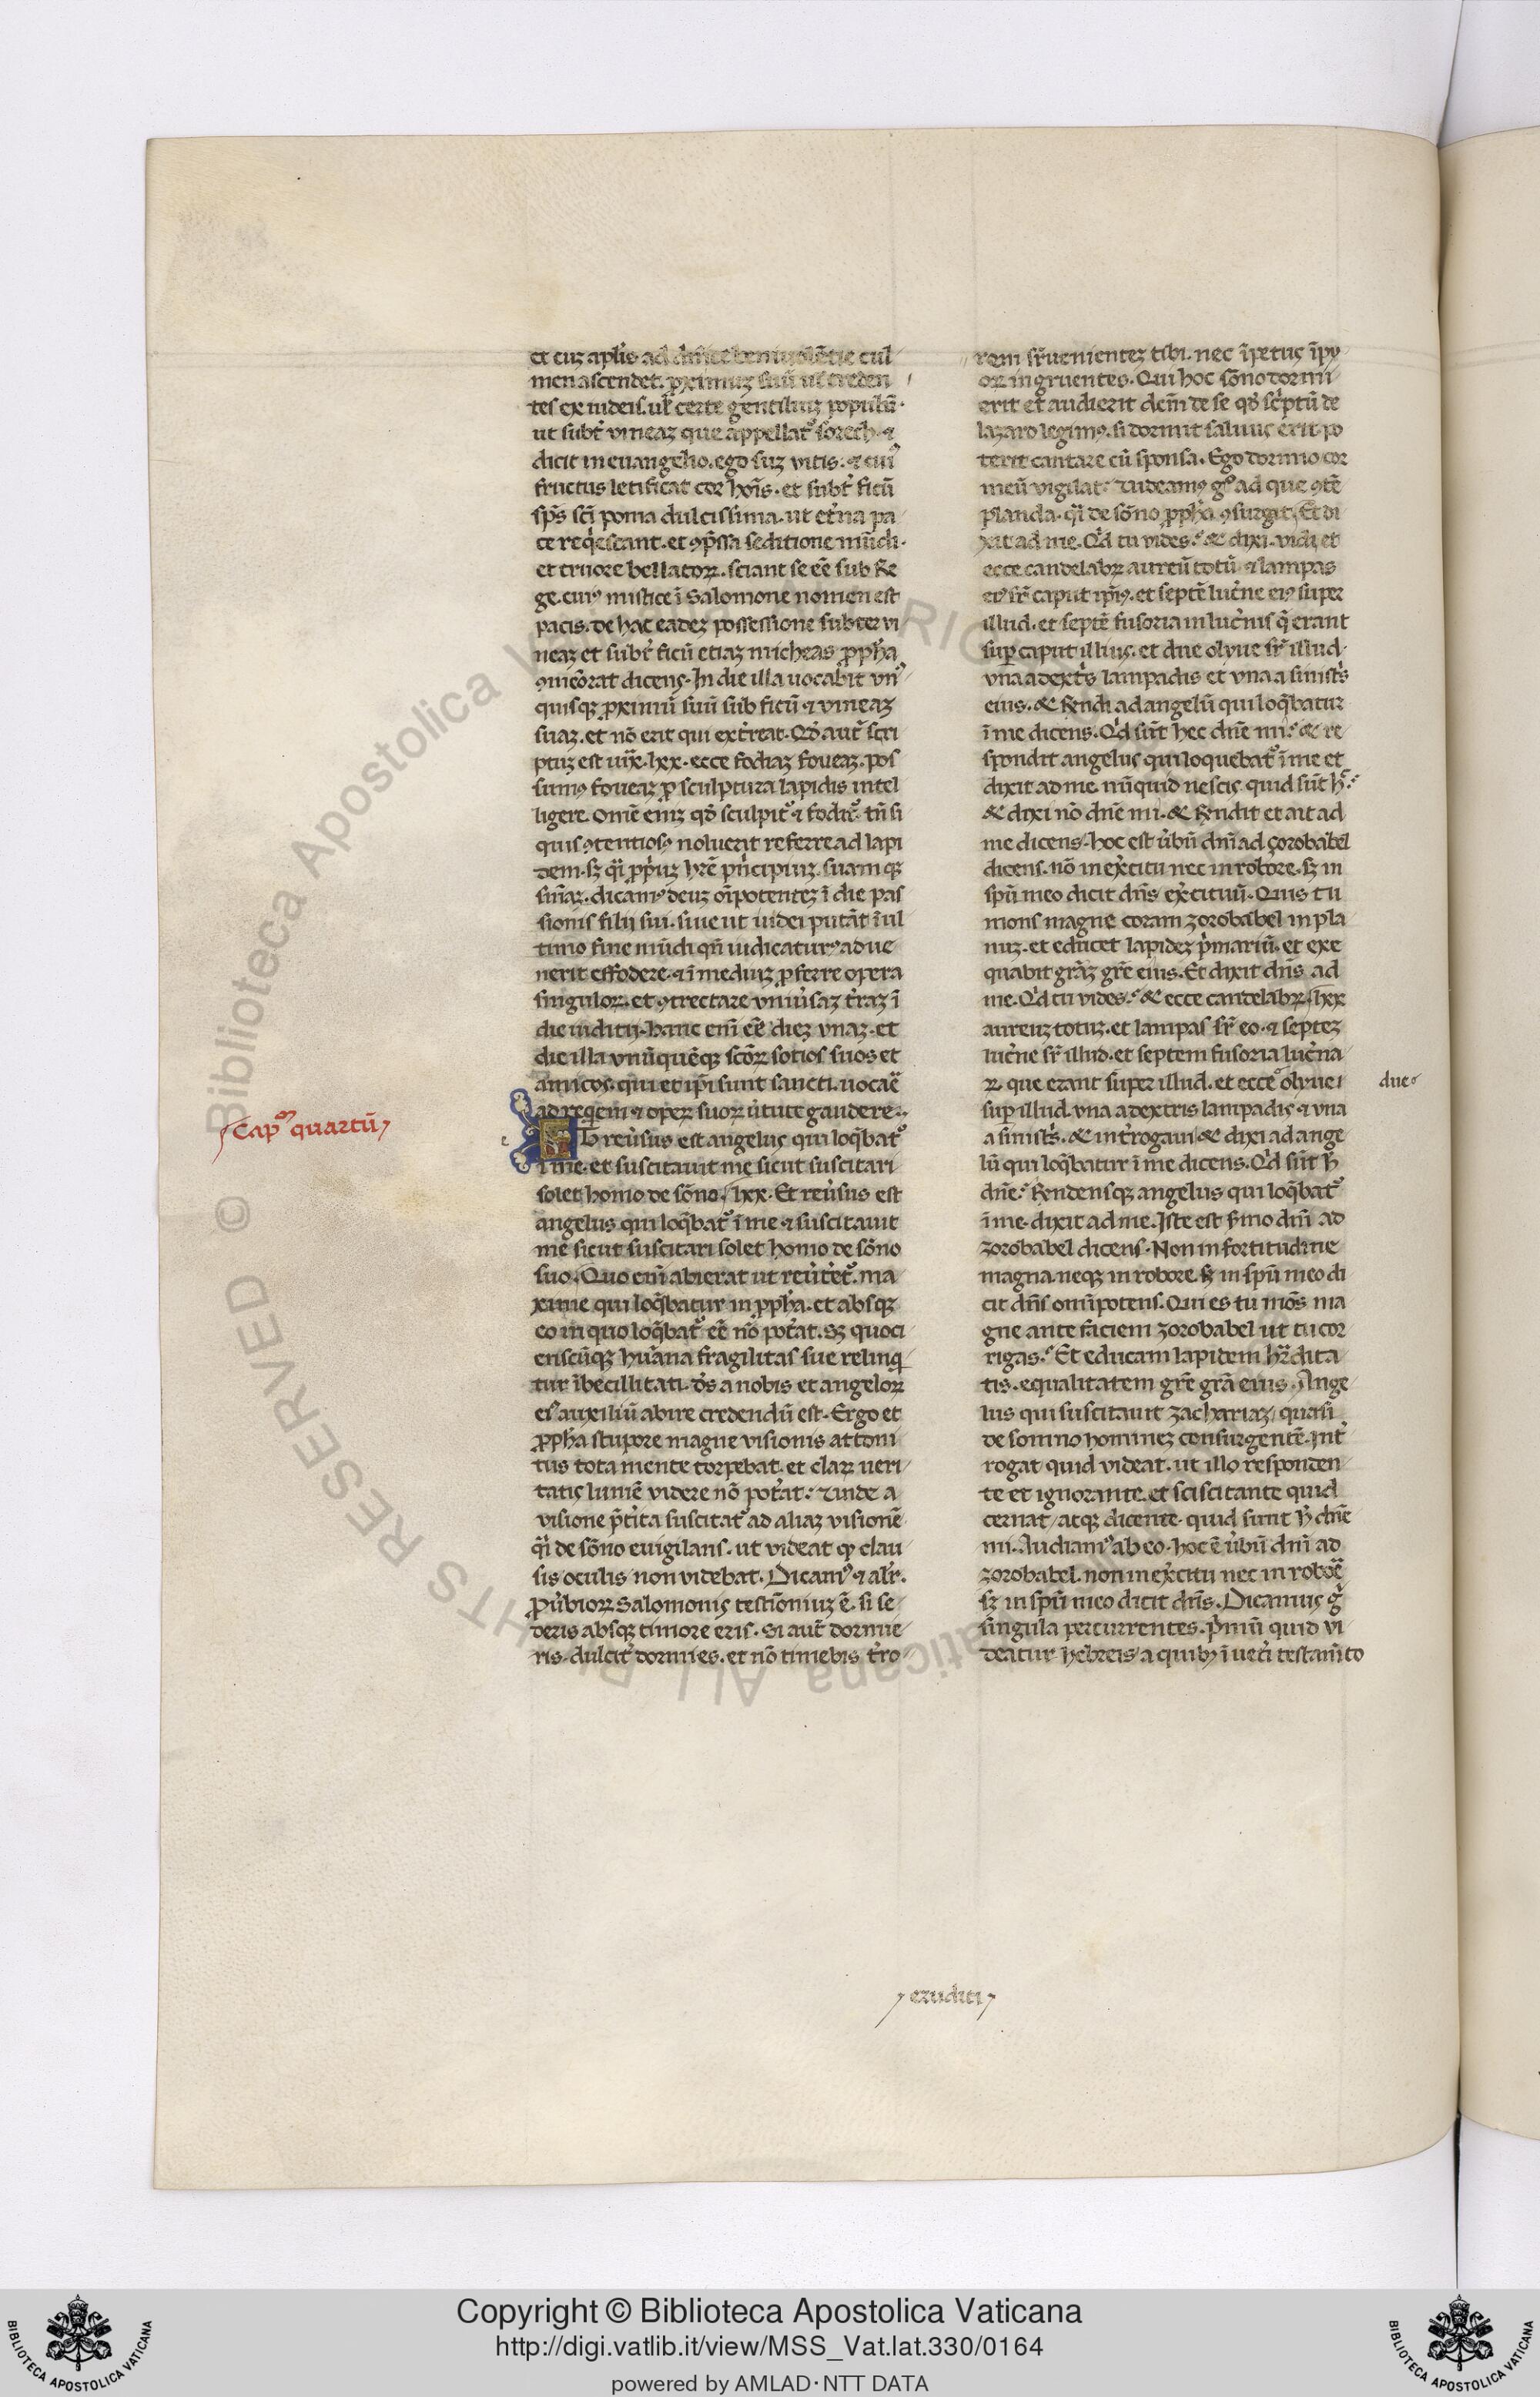 et cuz aplis ad diuine beniuolētie cul
men ascendet. proximuz suū ul' creden
tes ex iudeis. ul' certe gentiliuz populū.
ut subt' vineaz que appellat' sorech. ⁊
dicit in euangelio. ego suz vitis. ⁊ cui'
fructus letificat cor hoīs. et subt' ficū
sp̄s sc̄i poma dulcissima. ut et'na pa
ce reqͥescant. et ꝯp̄ssa seditione mūdi.
et cruore bellatoꝝ. sciant se eē sub Re
ge. cuiꝰ mistice ī Salomone nomen est
pacis. de hac eadez possessione subter vi
neaz et subt' ficū etiaz micheas ꝓpha
ꝯmēorat dicens. In die illa uocabit vnꝰ
quisqꝫ ꝓximū suū sub ficū ⁊ vineaz
suaz. et nō erit qui ext'reat. Qd' aut̄ scri
ptuz est iux. lxx. ecce fodiaz foueaz. pos
sumꝰ foueaz ꝓ sculptura lapidis intel
ligere. Omē eniz qd' sculpit' ⁊ fodit'. tn̄ si
quis ꝯtentiosꝰ noluerit referre ad lapi
dem. sꝫ qͣi ꝓpͥuz hr̄e pͥncipiuz. suamqꝫ
sn̄iaz. dicamꝰ deuz oīpotentez ī die pas
sionis filij sui. siue ut iudei putāt ī ul
timo fine mūdi qn̄ iudicaturꝰ adue
nerit effodere. ⁊ ī mediuz ꝓferre opera
singuloꝝ. et ꝯtrectare vniu'saz t'raz ī
die iudicij. hanc enī eē diez vnaz. et
die illa vnūquēqꝫ scōꝝ socios suos et
amicos. qui et ip̄i sunt sancti. uocare
ad reqͥem ⁊ operꝫ suoꝝ u'tute gaudere.
Et reu'sus est angelus qui loqͤbat'
ī me. et suscitauit me sicut suscitari
solet homo de sōno. lxx. Et reu'sus est
angelus qui loqͤbat' ī me ⁊ suscitauit
me sicut suscitari solet homo de sōno
suo. Quo enī abierat ut reu't'et'. ma
xime qui loqͤbatur in ꝓpha. et absqꝫ
eo in quo loqͤbat' eē nō pot'at. Sꝫ quoci
enscūqꝫ humana fragilitas sue relinqͥ
tur ībecillitati. d's a nobis et angeloꝝ
eiꝰ auxiliū abire credendū est. Ergo et
ꝓpha stupore magne visionis attoni
tus tota mente torpebat. et claꝝ ueri
tatis lumē videre nō pot'at. Unde a
visione p̄t'ita suscitat' ad aliaz visionē
qͣi de sōno euigilans. ut videat qͫ clau
sis oculis non videbat. Dicamꝰ ⁊ alr'.
ꝓu'bioꝝ Salomonis testīoniuz ē. si se
deris absqꝫ timore eris. Si aut̄ dormie
ris. dulcit' dormies. et nō timebis t'ro
rem sr̄uenientez tibi. nec īpetus īpi
oꝝ ingruentes. Qui hoc sōno dormi
erit et audierit dc̄m de se qd' sc̄ptū de
lazaro legimꝰ. si dormit saluus erit. po
terit cantare cū sponsa. Ego dormio cor
meū vigilat. Uideamꝰ gͦ ad que ꝯtē
planda. qͣi de sōno ꝓpha ꝯsurgit. Et di
xit ad me. Qͥd tu vides. & dixi. vidi et
ecce candelabꝝ aureū totū. ⁊ lampas
eiꝰ sr̄ caput ip̄iꝰ. et septē luc'ne eiꝰ super
illud. et septē fusoria in luc'nis qͤ erant
suꝑ caput illius. et due olyue sr̄ illud.
vna a dext'is lampadis et vna a sinist'is
eius. & R̄endi ad angelū qui loqͤbatur
ī me dicens. Qͥd sūt hec dn̄e mi. & re
spondit angelus qui loquebat' ī me et
dixit ad me. nūquid nescis quid sūt h'.
& dixi nō dn̄e mi. & R̄endit et ait ad
me dicens. hoc est u'bū dn̄i ad çorobabel
dicens. nō in ex'citu nec in robore. sꝫ in
sp̄u meo dicit dn̄s ex'cituū. Quis tu
mons magne coram zorobabel in pla
nuz. et educet lapidez pͥmariū. et exe
quabit grāz grē eius. Et dixit dn̄s ad
me. Qͥd tu vides. & ecce candelabꝝ lxx
aureuz totuz. et lampas sr̄ eo. ⁊ septez
luc'ne sr̄ illud. et septem fusoria luc'na
ꝝ que erant super illud. et ecce olyue
suꝑ illud. vna a dextris lampadis ⁊ vna
a sinist'is. & int'rogaui & dixi ad ange
lū qui loqͤbatur ī me dicens. Qͥd sūt h'
dn̄e. R̄endensqꝫ angelus qui loqͤbat'
ī me. dixit ad me. Iste est s'mo dn̄i ad
zorobabel dicens. Non in fortitudine
magna neqꝫ in robore. sꝫ in sp̄u meo di
cit dn̄s omīpotens. Qui es tu mōs ma
gne ante faciem zorobabel ut tu cor
rigas. Et educam lapidem hr̄dita
tis. equalitatem grē grā eius. Ange
lus qui suscitauit zachariaz. quasi
de somno hominez consurgentē. int'
rogat quid videat. ut illo responden
te et ignorante. et sciscitante quid
cernat. atqꝫ dicente. quid sunt h' dn̄e
mi. Audiamꝰ ab eo. hoc ē u'bū dn̄i ad
zorobabel. non in ex'citu nec in robore
sꝫ in sp̄u meo dicit dn̄s. Dicamus gͦ
singula percurrentes. pͥmū quid vi
deatur hebreis a quibꝰ ī uet'i testam̄to
Cap.ᵐ quartū
e
due
eruditi
© Biblioteca Apostolica Vaticana ALL RIGHTS RESERVED
Copyright © Biblioteca Apostolica Vaticana
http://digi.vatlib.it/view/MSS_Vat.lat.330/0164
powered by AMLAD·NTT DATA
BIBLIOTECA APOSTOLICA VATICANA
BIBLIOTECA APOSTOLICA VATICANA